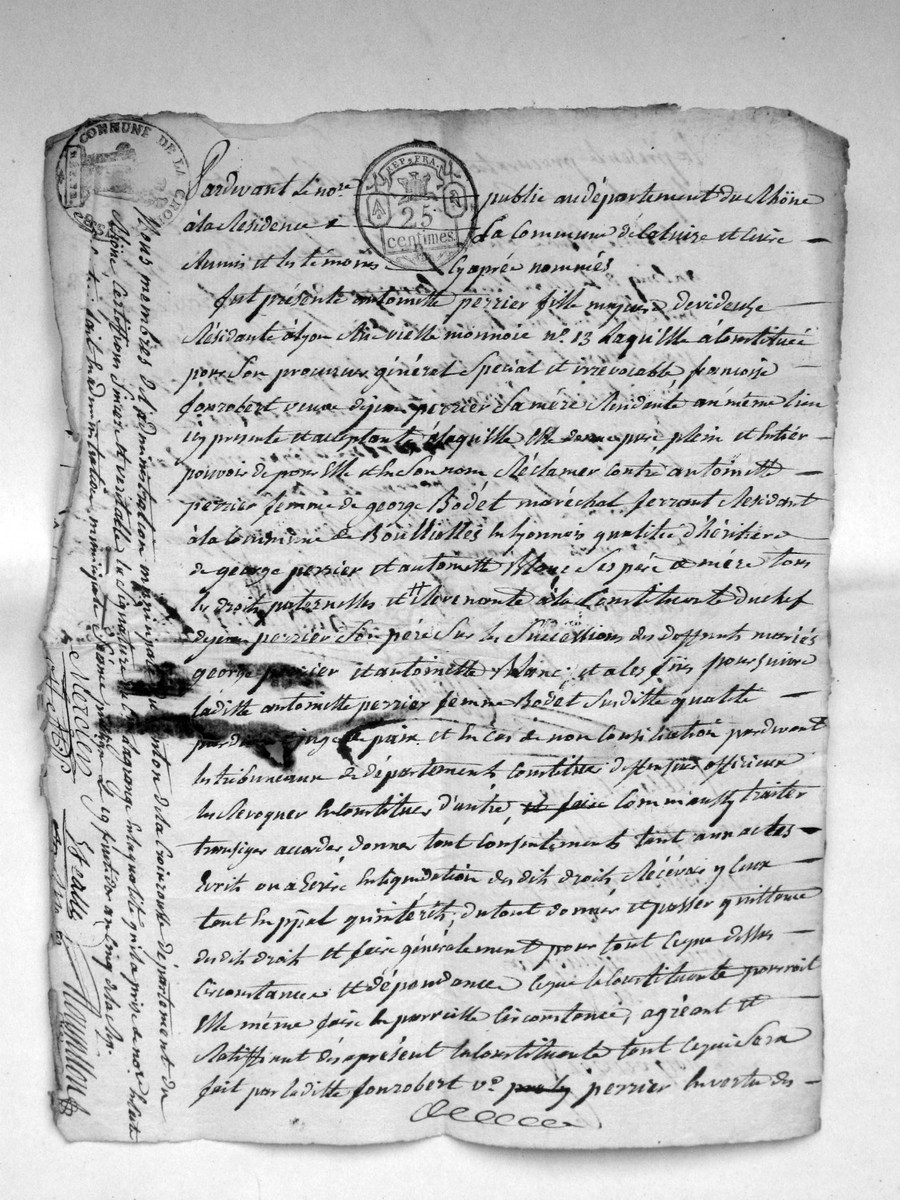 COMMUNE DE LA CROIX
REP. FRA.
25
centimes
Pardevant le nore public au département du Rhône
à la Résidence de la Commune de Caluire et Cuire
et les témoins cy après nommés
fut présente antoinette perrier fille majeure devideuse
Résidante à lyon Rue vielle monnoie no. 13 laquelle a Constituée
pour Son procureur général Spécial et irrévocable, françoise
fonrobert veuve de jean perrier Sa mère Residante au même lieu
icy presente et acceptante à laquelle Elle donne pure plein et Entier
pouvoir de pour Elle et En Son nom Réclamer contre antoinette
perrier femme de george Bodet maréchal ferrant Residant
à la Commune de En lyonnois qualitée d'héritière
de george perrier et antoinette Blanc Ses père et mère tous
les droits paternelles et Revenants à la Constituante du chef
de jean perrier Son père Sur les Successions des deffunts mariés
george perrier et antoinette Blanc, et a les fins poursuivre
laditte antoinette perrier femme Bodet Susditte qualité
pardevant juge de paix et En Cas de non Consiliation pardevant
les tribuneaux de département Constituer deffenseur officieux
les Revoquer En Constituer d'autre, et faire traiter
transiger accorder donner tout Consentements tant aux actes
Ecrits ou a Ecrire En liquidation des dits droits, Récévoir y Ceux
tant En ppal qu'interêts, du tout donner et passer quittance
des dits droits et faire généralement pour tout Ceque dessus
Circonstance et dépendance Ceque la Constituante pourroit
Elle même faire En parreille Circonstance, agréant et
Ratiffiant dès aprésent la Constituante tout Cequi Sera
fait par laditte fonrobert ve. perrier En vertu des
Nous membres de l'administration municipale du Canton de la Croixrousse département du
Rhône Certiffions Sincere et veritable la Signature de lagrange En laquelle qu'il a prise de nore
fait En administration municipale Séance le 29 fructidor an Cinq de la Rep.